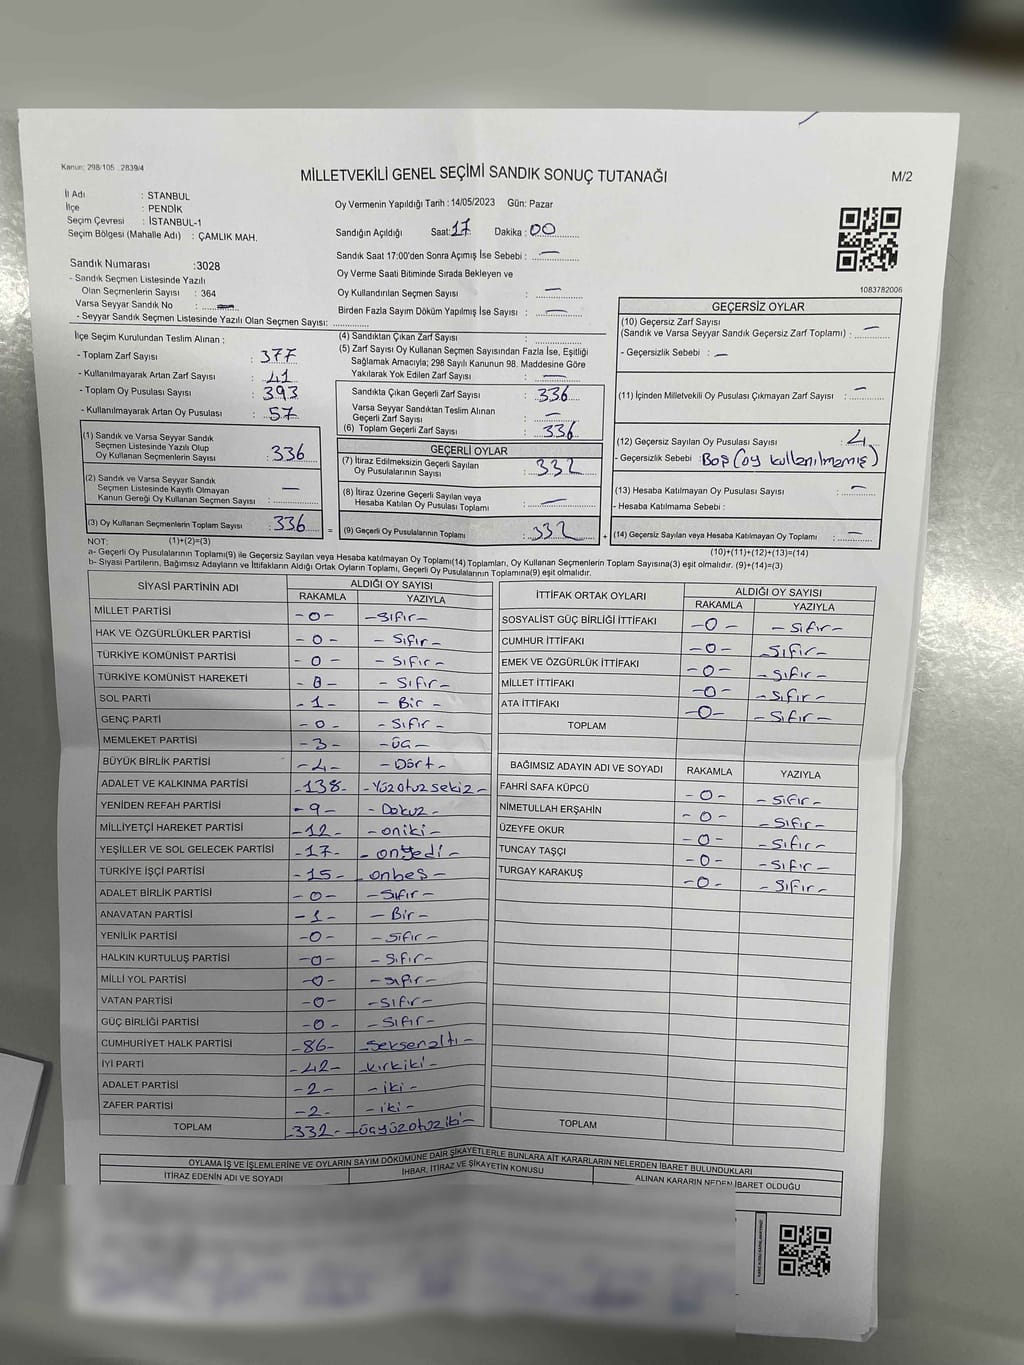 Kanun: 298/105 . 2839/4
MİLLETVEKİLİ GENEL SEÇİMİ SANDIK SONUÇ TUTANAĞI
M/2
İl Adı : STANBUL
İlçe : PENDİK
Seçim Çevresi : İSTANBUL-1
Seçim Bölgesi (Mahalle Adı) : ÇAMLIK MAH.
Sandık Numarası :3028
- Sandık Seçmen Listesinde Yazılı
Olan Seçmenlerin Sayısı : 364
Varsa Seyyar Sandık No : —
- Seyyar Sandık Seçmen Listesinde Yazılı Olan Seçmen Sayısı:
Oy Vermenin Yapıldığı Tarih : 14/05/2023 Gün: Pazar
Sandığın Açıldığı Saat: 17 Dakika : 00
Sandık Saat 17:00'den Sonra Açımış İse Sebebi : —
Oy Verme Saati Bitiminde Sırada Bekleyen ve
Oy Kullandırılan Seçmen Sayısı : —
Birden Fazla Sayım Döküm Yapılmış İse Sayısı : —
1083782006
İlçe Seçim Kurulundan Teslim Alınan ;
- Toplam Zarf Sayısı : 377
- Kullanılmayarak Artan Zarf Sayısı : 41
- Toplam Oy Pusulası Sayısı : 393
- Kullanılmayarak Artan Oy Pusulası : 57
(1) Sandık ve Varsa Seyyar Sandık
Seçmen Listesinde Yazılı Olup
Oy Kullanan Seçmenlerin Sayısı : 336
(2) Sandık ve Varsa Seyyar Sandık
Seçmen Listesinde Kayıtlı Olmayan
Kanun Gereği Oy Kullanan Seçmen Sayısı : —
(3) Oy Kullanan Seçmenlerin Toplam Sayısı : 336
(4) Sandıktan Çıkan Zarf Sayısı :
(5) Zarf Sayısı Oy Kullanan Seçmen Sayısından Fazla İse, Eşitliği
Sağlamak Amacıyla; 298 Sayılı Kanunun 98. Maddesine Göre
Yakılarak Yok Edilen Zarf Sayısı : —
Sandıkta Çıkan Geçerli Zarf Sayısı : 336
Varsa Seyyar Sandıktan Teslim Alınan
Geçerli Zarf Sayısı : —
(6) Toplam Geçerli Zarf Sayısı : 336
GEÇERLİ OYLAR
(7) İtiraz Edilmeksizin Geçerli Sayılan
Oy Pusulalarının Sayısı : 332
(8) İtiraz Üzerine Geçerli Sayılan veya
Hesaba Katılan Oy Pusulası Toplamı : —
= (9) Geçerli Oy Pusulalarının Toplamı : 332 +
GEÇERSİZ OYLAR
(10) Geçersiz Zarf Sayısı
(Sandık ve Varsa Seyyar Sandık Geçersiz Zarf Toplamı) : —
- Geçersizlik Sebebi : —
(11) İçinden Milletvekili Oy Pusulası Çıkmayan Zarf Sayısı : —
(12) Geçersiz Sayılan Oy Pusulası Sayısı : 4
- Geçersizlik Sebebi : Boş (oy kullanılmamış)
(13) Hesaba Katılmayan Oy Pusulası Sayısı : —
- Hesaba Katılmama Sebebi :
(14) Geçersiz Sayılan veya Hesaba Katılmayan Oy Toplamı : —
NOT: (1)+(2)=(3)
(10)+(11)+(12)+(13)=(14)
a- Geçerli Oy Pusulalarının Toplamı(9) ile Geçersiz Sayılan veya Hesaba katılmayan Oy Toplamı(14) Toplamları, Oy Kullanan Seçmenlerin Toplam Sayısına(3) eşit olmalıdır. (9)+(14)=(3)
b- Siyasi Partilerin, Bağımsız Adayların ve İttifakların Aldığı Ortak Oyların Toplamı, Geçerli Oy Pusulalarının Toplamına(9) eşit olmalıdır.
SİYASİ PARTİNİN ADI ALDIĞI OY SAYISI
RAKAMLA YAZIYLA
MİLLET PARTİSİ -0- -Sıfır-
HAK VE ÖZGÜRLÜKLER PARTİSİ -0- -Sıfır-
TÜRKİYE KOMÜNİST PARTİSİ -0- -Sıfır-
TÜRKİYE KOMÜNİST HAREKETİ -0- -Sıfır-
SOL PARTİ -1- -Bir-
GENÇ PARTİ -0- -Sıfır-
MEMLEKET PARTİSİ -3- -Üç-
BÜYÜK BİRLİK PARTİSİ -4- -Dört-
ADALET VE KALKINMA PARTİSİ -138- -Yüzotuzsekiz-
YENİDEN REFAH PARTİSİ -9- -Dokuz-
MİLLİYETÇİ HAREKET PARTİSİ -12- -oniki-
YEŞİLLER VE SOL GELECEK PARTİSİ -17- -onyedi-
TÜRKİYE İŞÇİ PARTİSİ -15- -onbeş-
ADALET BİRLİK PARTİSİ -0- -Sıfır-
ANAVATAN PARTİSİ -1- -Bir-
YENİLİK PARTİSİ -0- -Sıfır-
HALKIN KURTULUŞ PARTİSİ -0- -Sıfır-
MİLLİ YOL PARTİSİ -0- -Sıfır-
VATAN PARTİSİ -0- -Sıfır-
GÜÇ BİRLİĞİ PARTİSİ -0- -Sıfır-
CUMHURİYET HALK PARTİSİ -86- -Seksenaltı-
İYİ PARTİ -42- -kırkiki-
ADALET PARTİSİ -2- -iki-
ZAFER PARTİSİ -2- -iki-
TOPLAM -332- -üçyüzotuziki-
İTTİFAK ORTAK OYLARI ALDIĞI OY SAYISI
RAKAMLA YAZIYLA
SOSYALİST GÜÇ BİRLİĞİ İTTİFAKI -0- -Sıfır-
CUMHUR İTTİFAKI -0- -Sıfır-
EMEK VE ÖZGÜRLÜK İTTİFAKI -0- -Sıfır-
MİLLET İTTİFAKI -0- -Sıfır-
ATA İTTİFAKI -0- -Sıfır-
TOPLAM
BAĞIMSIZ ADAYIN ADI VE SOYADI RAKAMLA YAZIYLA
FAHRİ SAFA KÜPCÜ -0- -Sıfır-
NİMETULLAH ERŞAHİN -0- -Sıfır-
ÜZEYFE OKUR -0- -Sıfır-
TUNCAY TAŞÇI -0- -Sıfır-
TURGAY KARAKUŞ -0- -Sıfır-
TOPLAM
OYLAMA İŞ VE İŞLEMLERİNE VE OYLARIN SAYIM DÖKÜMÜNE DAİR ŞİKAYETLERLE BUNLARA AİT KARARLARIN NELERDEN İBARET BULUNDUKLARI
İTİRAZ EDENİN ADI VE SOYADI İHBAR, İTİRAZ VE ŞİKAYETİN KONUSU ALINAN KARARIN NEDEN İBARET OLDUĞU